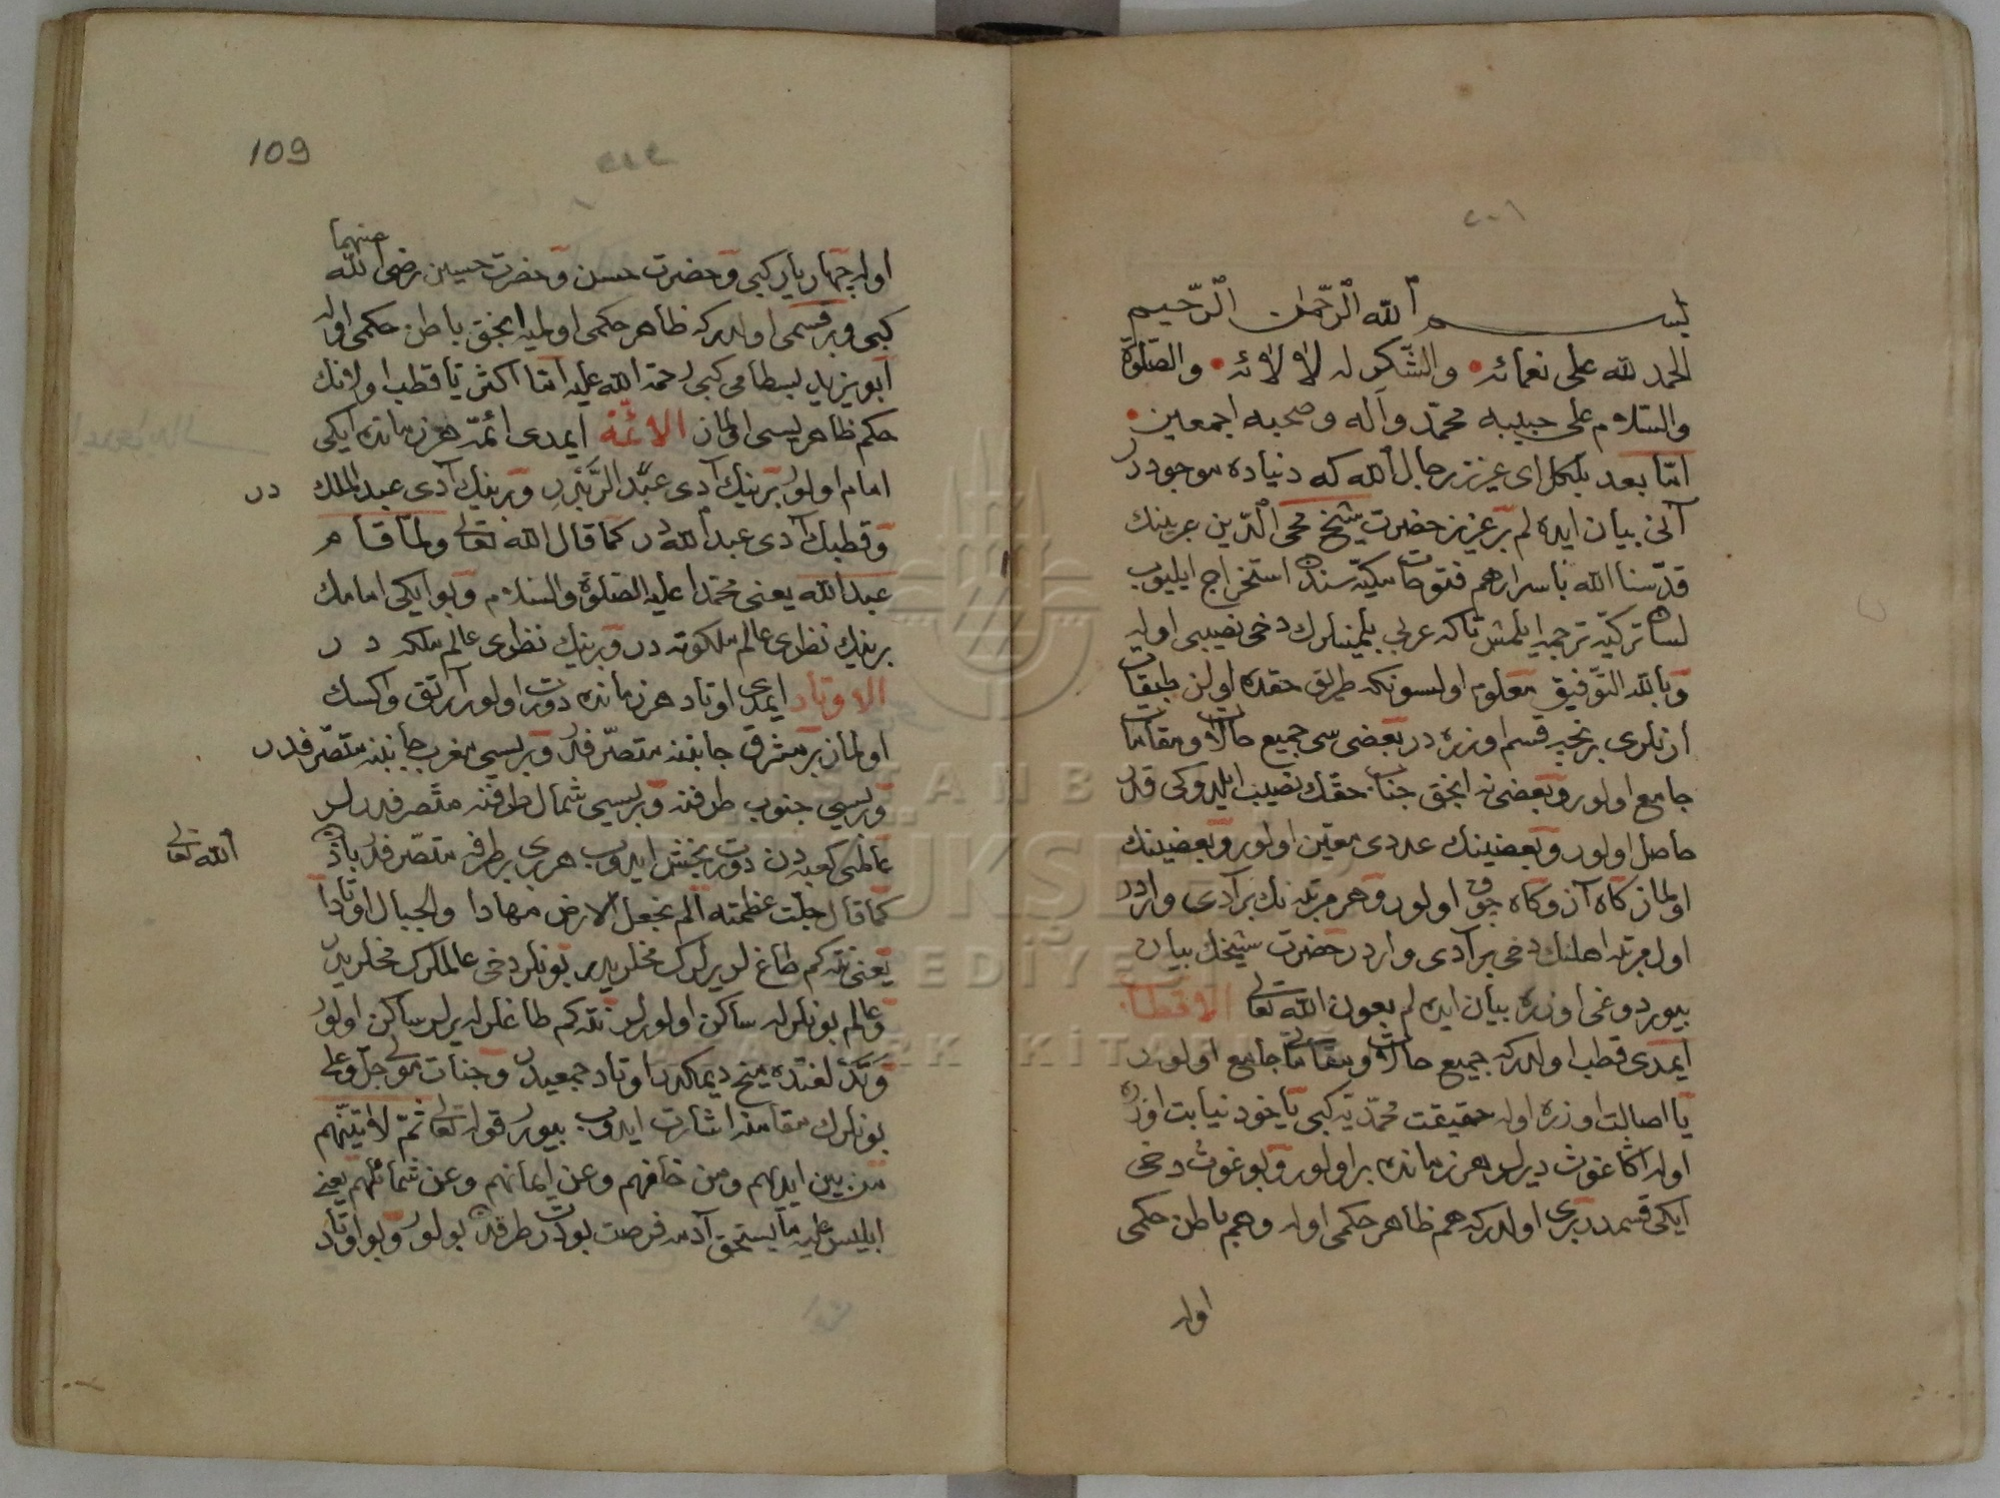 بسم الله الرّحمن الرّحيم
الحمد لله على نعمائه • والشّكر له لالائه • والصّلوة
والسّلام على حبيبه محمّد وآله وصحبه اجمعين •
امّا بعد بلكل اى عزيز رجال الله كه دنياده موجوددر
آنى بيان ايده لم بر عزيز حضرت شيخ محى الدّين عربينك
قدّسنا الله باسرارهم فتوحات مكيّه سندن استخراج ايليوب
لسان تركيّه ترجمه ايلمش تاكه عربى بلمينلرك دخى نصيبى اوله
وبالله التّوفيق معلوم اولسونكه طريق حقده اولن طبقات
ارنلرى بر نجه قسم اوزره در بعضى سى جميع حالات ومقامات
جامع اولور وبعضى نه انجق جناب حقّك نصيب ايلدوكى قدر
حاصل اولور وبعضينك عددى معيّن اولور وبعضينك
اولماز كاه آز وكاه چوق اولور وهر مرتبه نك بر آدى واردر
اول مرتبه اهلنك دخى بر آدى واردر حضرت شيخك بيان
بيوردوغى اوزره بيان ايده لم بعون الله تعالى الاقطاب
ايمدى قطب اولدركه جميع حالات ومقاماتى جامع اولور
يا اصالت اوزره اوله حقيقت محمّديّه كبى يا خود نيابت اوزره
اوله اكا غوث ديرلر هر زمانده بر اولور وبو غوث دخى
ايكى قسمدر برى اولدركه هم ظاهر حكمى اوله وهم باطن حكمى
اوله
109
اوله چهار يار كبى وحضرت حسن وحضرت حسين رضى الله عنهما
كبى وبر قسمى اولدركه ظاهر حكمى اوليه انجق باطن حكمى اوله
ابويزيد بسطامى كبى رحمة الله عليه امّا اكثريا قطب اولانك
حكم ظاهريسى اولماز الائمّة ايمدى ائمّه هر زمانده ايكى
امام اولور برينك آدى عبد الرّبّدر وبرينك آدى عبد الملك در
وقطبك آدى عبد الله در كما قال الله تعالى ولمّا قام
عبد الله يعنى محمّدا عليه الصّلوة والسّلام وبو ايكى امامك
برينك نظرى عالم ملكوته در وبرينك نظرى عالم ملكه در
الاوتاد ايمدى اوتاد هر زمانده درت اولور آرتق واكسك
اولماز بر مشرق جانبنه متصرّفدر وبريسى مغرب جانبنه متصرّفدر
وبريسى جنوب طرفنه وبريسى شمال طرفنه متصرفدرلر
عالمى كعبه دن درت بخش ايدوب هر برى بر طرفه متصرّفدر باذن الله تعالى
كما قال جلّت عظمته الم نجعل الارض مهادا والجبال اوتادا
يعنى نته كم طاغلر يرلرك مخلريدر بونلر دخى عالملرك مخلريدر
وعالم بونلرله ساكن اولورلر نته كم طاغلرله يرلر ساكن اولور
وتد لغتده ميخ ديمكدر اوتاد جمعيدر وجناب مولى جلّ وعلا
بونلرك مقامنه اشارت ايدوب بيورر قوله تعالى ثمّ لاتينّهم
من بين ايديهم ومن خلفهم وعن ايمانهم وعن شمائلهم يعنى
ابليس عليه ما يستحق آدمه فرصت بو درت طرفدن بولور وبو اوتاد